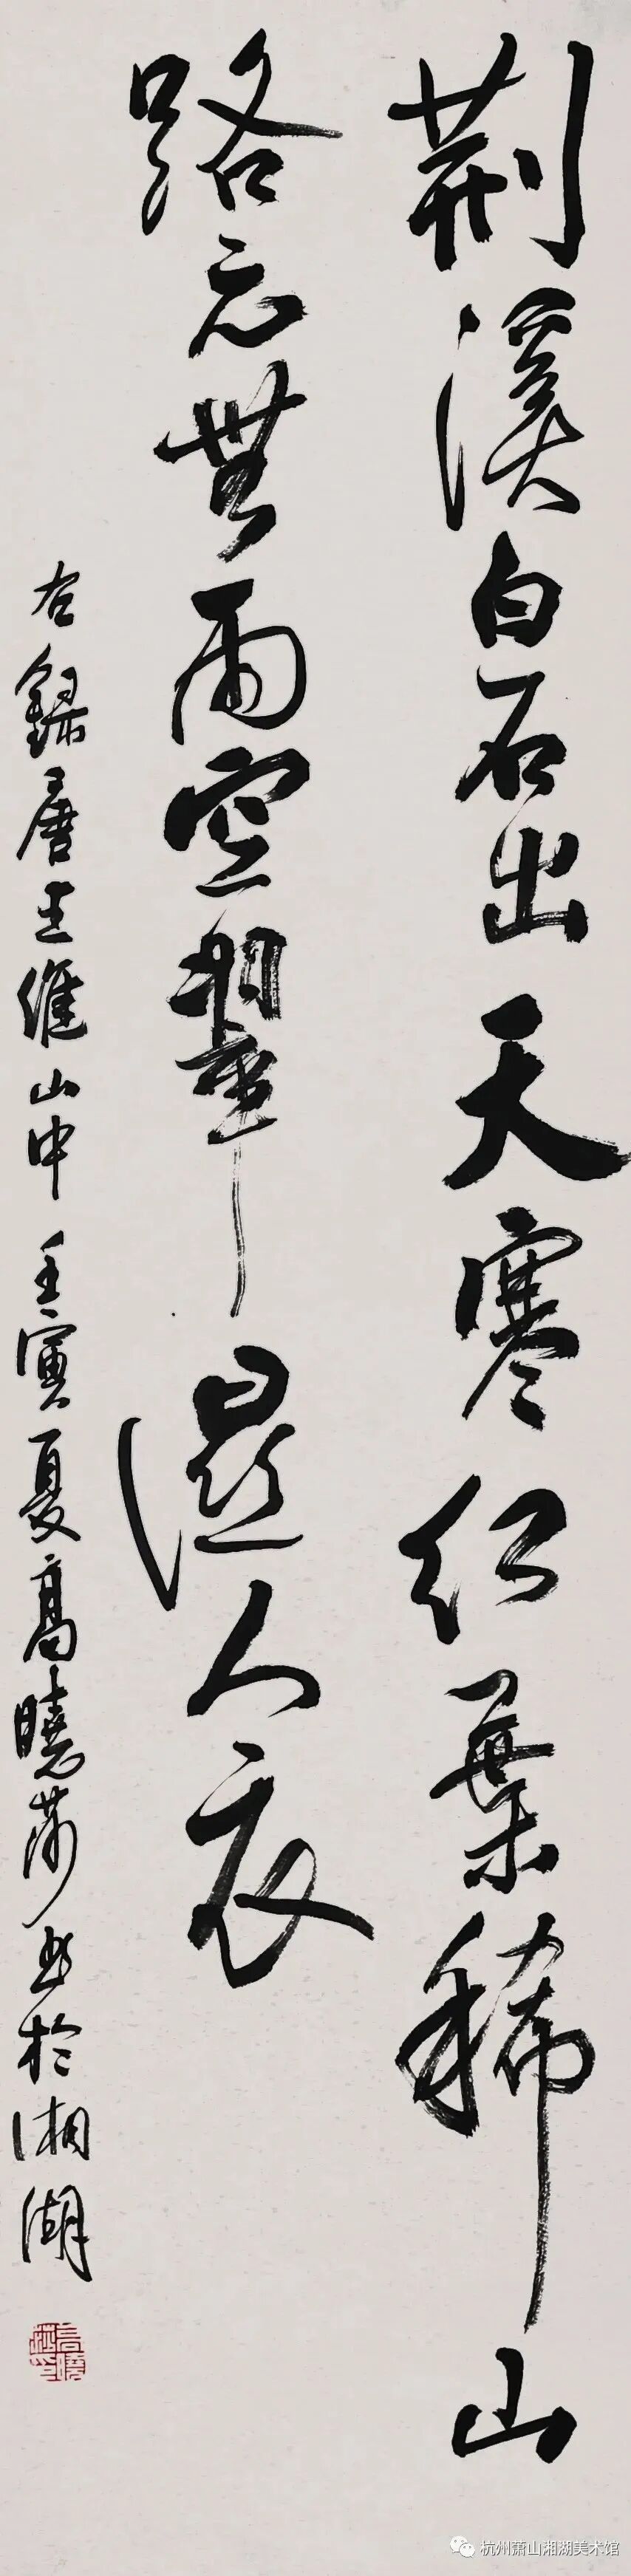 荆溪白石出天寒红葉稀山
路元無雨空翠濕人衣
右録唐王維山中 壬寅夏高曉莎书於湘湖
杭州萧山湘湖美术馆